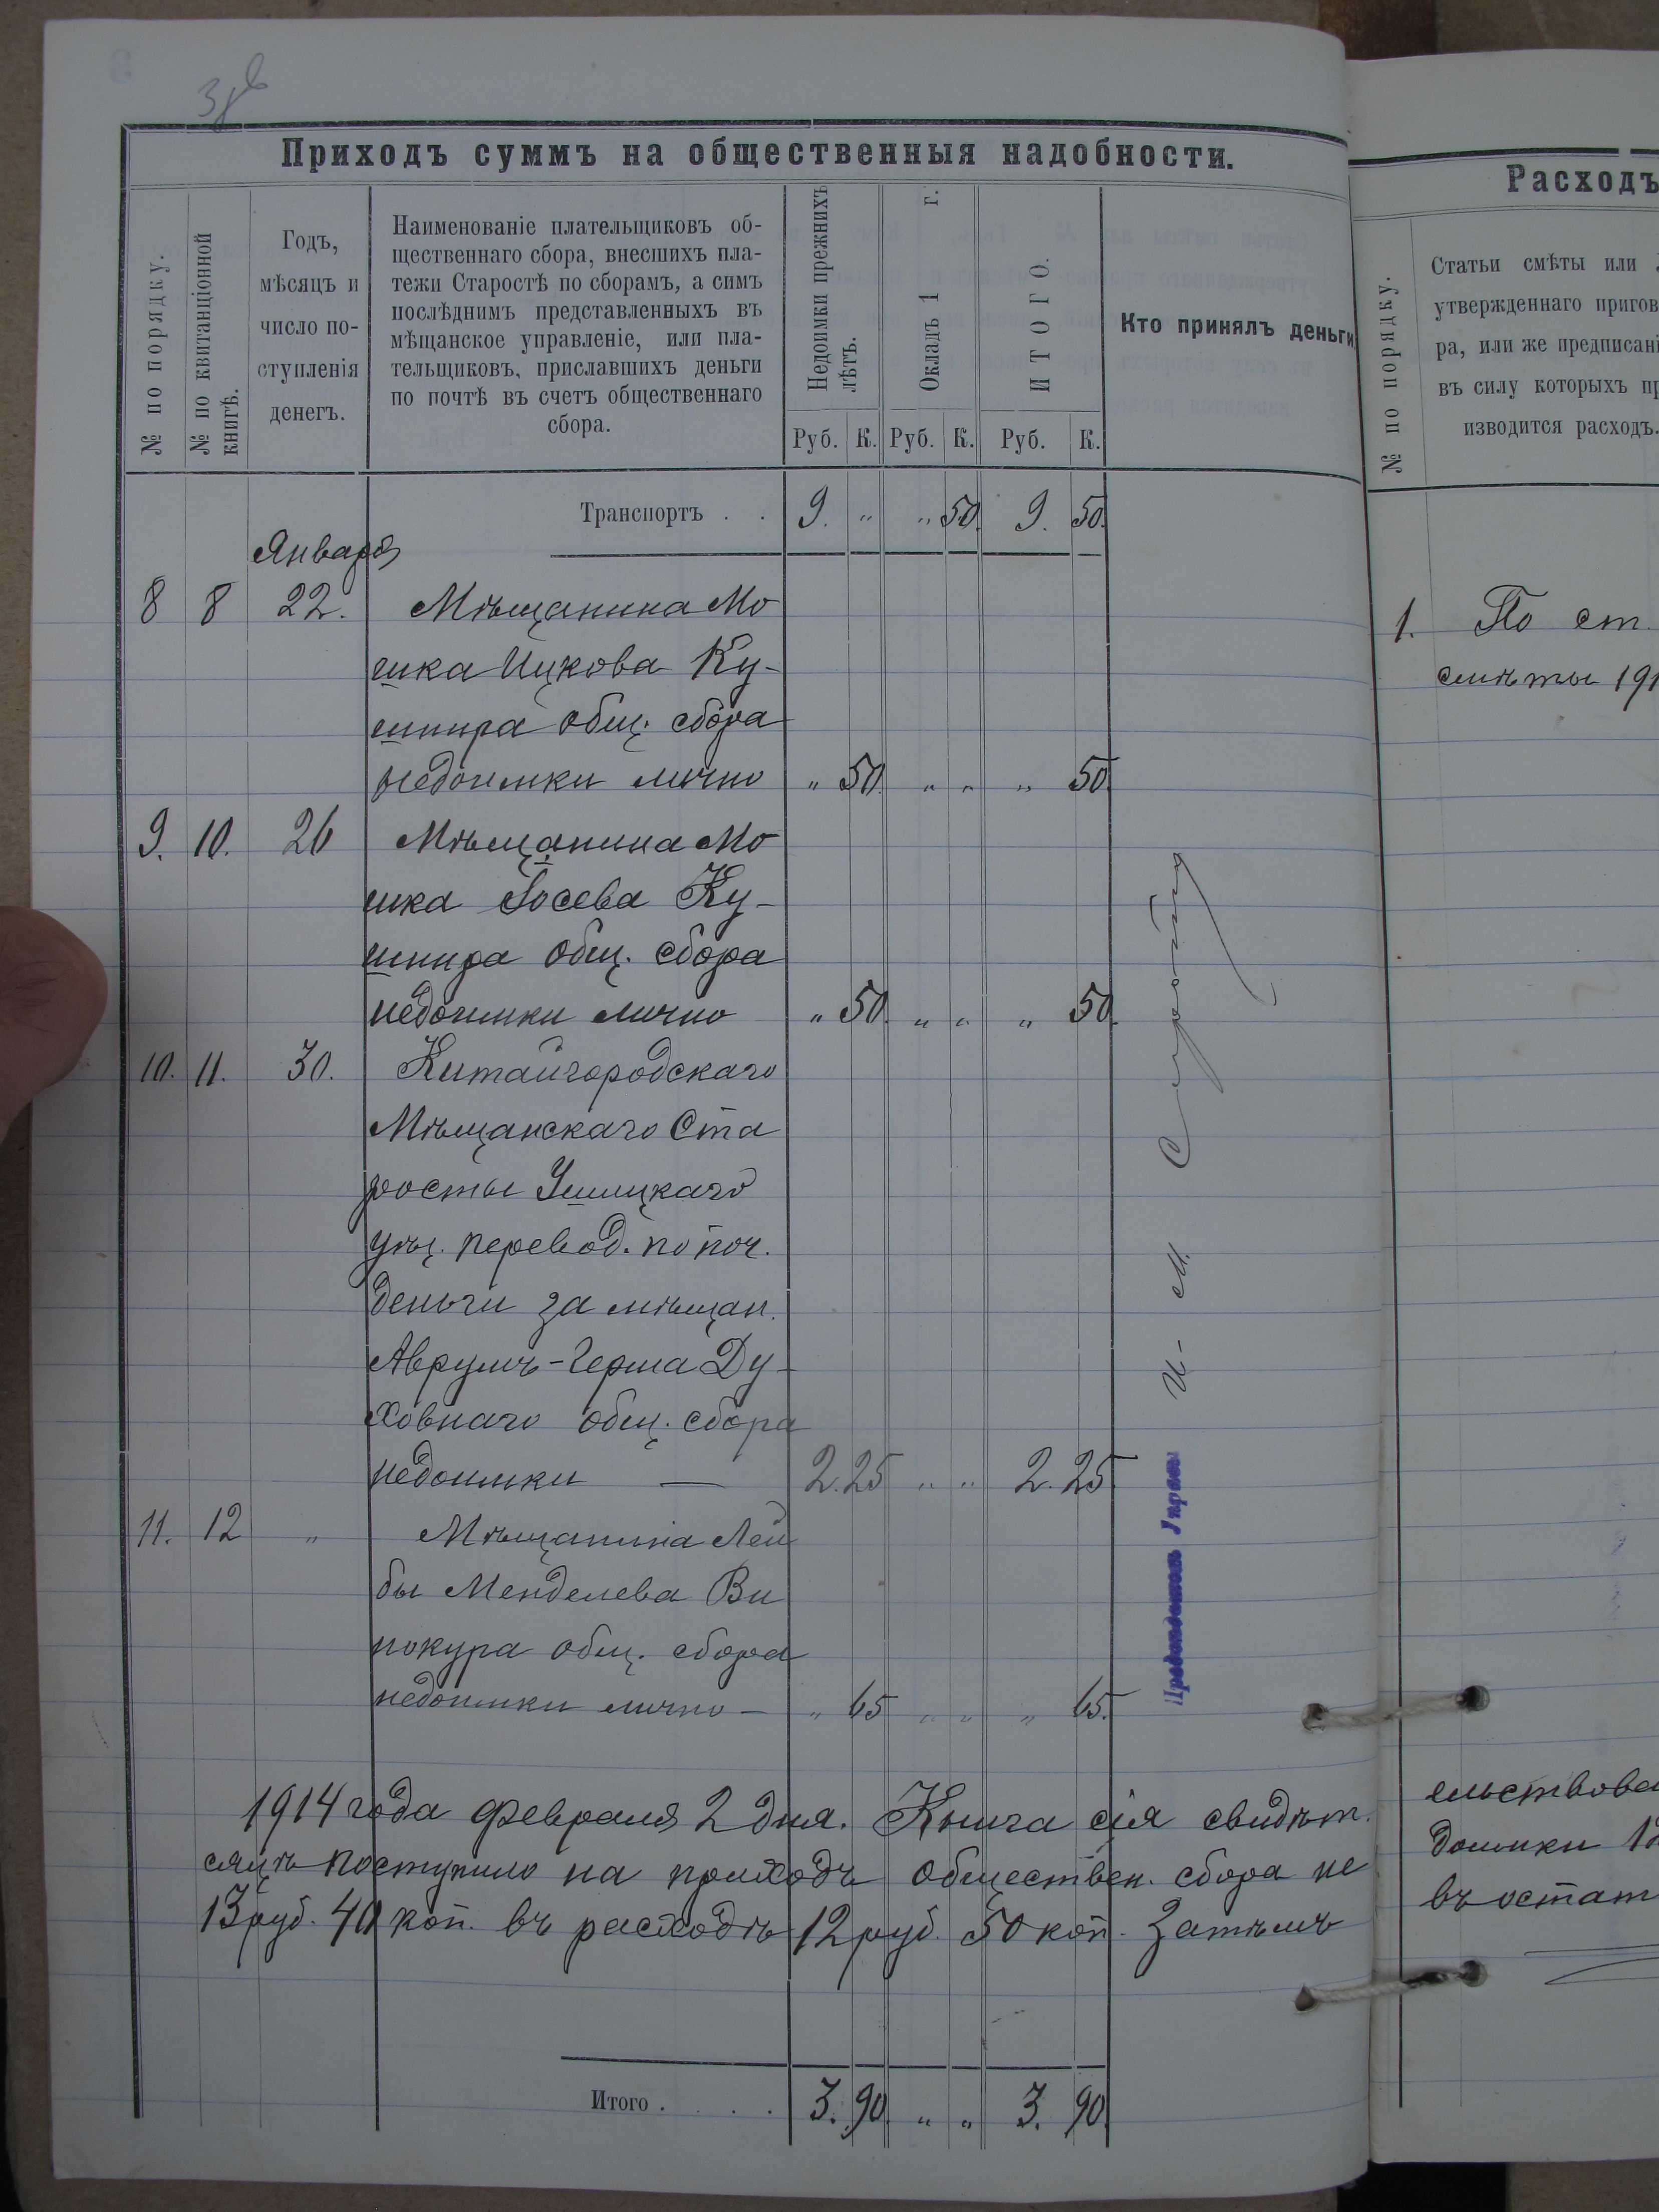 Приходъ суммъ на общественныя надобности.
№ по порядку.
№ по квитанціонной
книгѣ.
Годъ,
мѣсяцъ и
число по-
ступленія
денегъ.
Наименованіе плательщиковъ об-
щественнаго сбора, внесшихъ пла-
тежи Старостѣ по сборамъ, а симъ
послѣднимъ представленныхъ въ
мѣщанское управленіе, или пла-
тельщиковъ, приславшихъ деньги
по почтѣ въ счетъ общественнаго
сбора.
Недоимки прежнихъ
лѣтъ.
Окладъ 1 г.
ИТОГО.
Кто принялъ деньги
Руб. К. Руб. К. Руб. К.
Транспортъ . . 9. " " 50. 9. 50.
Января
8 8 22. Мѣщанина Мо
шка Ицкова Ку-
шнира общ. сбора
недоимки лично " 50. " " " 50.
9. 10. 26 Мѣщанина Мо
шка Іосева Ку-
шнира общ. сбора
недоимки лично " 50. " " " 50.
10. 11. 30. Китайгородскаго
Мѣщанскаго Ста
росты Ушицкаго
уѣз. перевод. по поч.
деньги за мѣщан.
Аврумъ-Герша Ду-
ховнаго общ. сбора
недоимки — 2. 25 " " 2. 25.
11. 12 " Мѣщанина Лей
бы Менделева Ви
нокура общ. сбора
недоимки лично — " 65 " " " 65.
И - М.
1914 года февраля 2 дня. Книга сія свидѣт.
сяцѣ поступило на приходъ обществен. сбора не
13 руб. 40 коп. въ расходѣ 12 руб. 50 коп. Затѣмъ
Итого . . . 3. 90. " " 3. 90.
Расходъ
№ по порядку.
Статьи смѣты или
утвержденнаго пригов
ра, или же предписані
въ силу которыхъ пр
изводится расходъ.
1. По ст.
смѣты 191
ельствова
доимки 12
въ остат